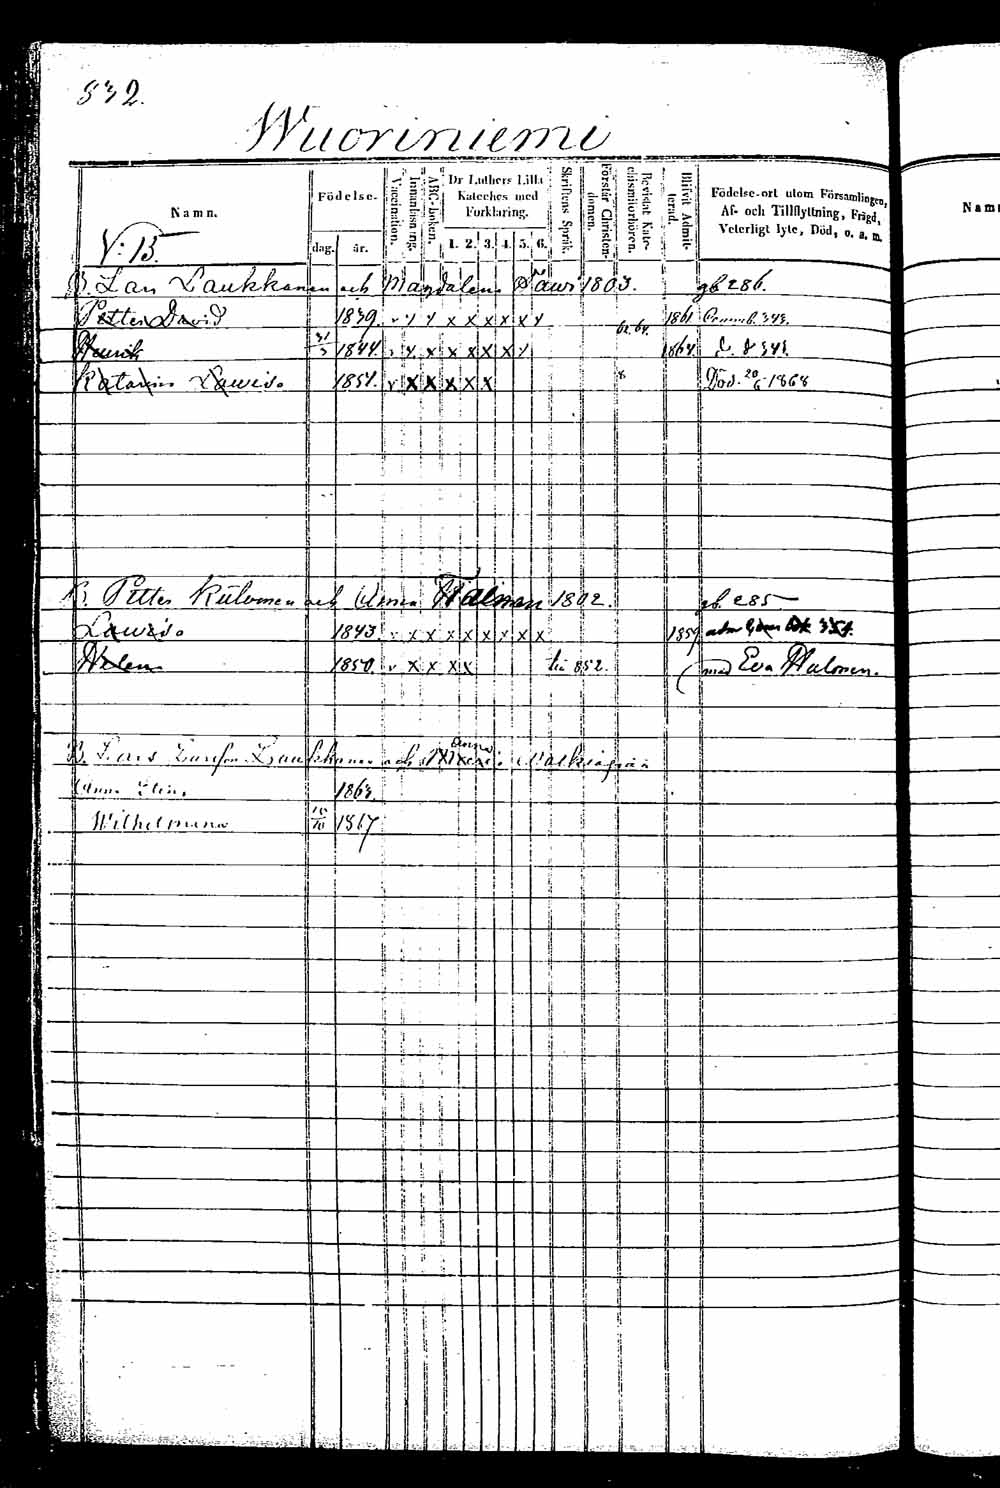 832.
Wuoriniemi
Namn. Födelse- dag. år. Vaccination. Innanläsning. ABC-boken. Dr Luthers Lilla Kateches med Förklaring. 1. 2. 3. 4. 5. 6. Skriftens Språk. Förstår Christendomen. Bevistat Katechismiförhören. Blifvit Admitterad. Födelse-ort utom Församlingen, Af- och Tillflyttning, Frägd, Veterligt lyte, Död, o. a. m.
Nam
V: 15.
B. Lars Laukkanen och Magdalena 1803. gb 286.
Petter David 1839. v y y x x x x x y 1861 343.
Henrik 31/3 1844. v y x x x x x y 62. 64. 1864. 343.
Katarina Lowisa 1854. v x x x x x 8 Död. 20/6 1868
B. Petter Kiilonen och Anna Halonen 1802. gb. 285
Lowisa 1843. v x x x x x x x x 1859
Helena 1850. v x x x x 852. med Eva Halonen.
B. Lars Larsson Laukkanen och Anna
Anna 1863.
Wilhelmina 1867